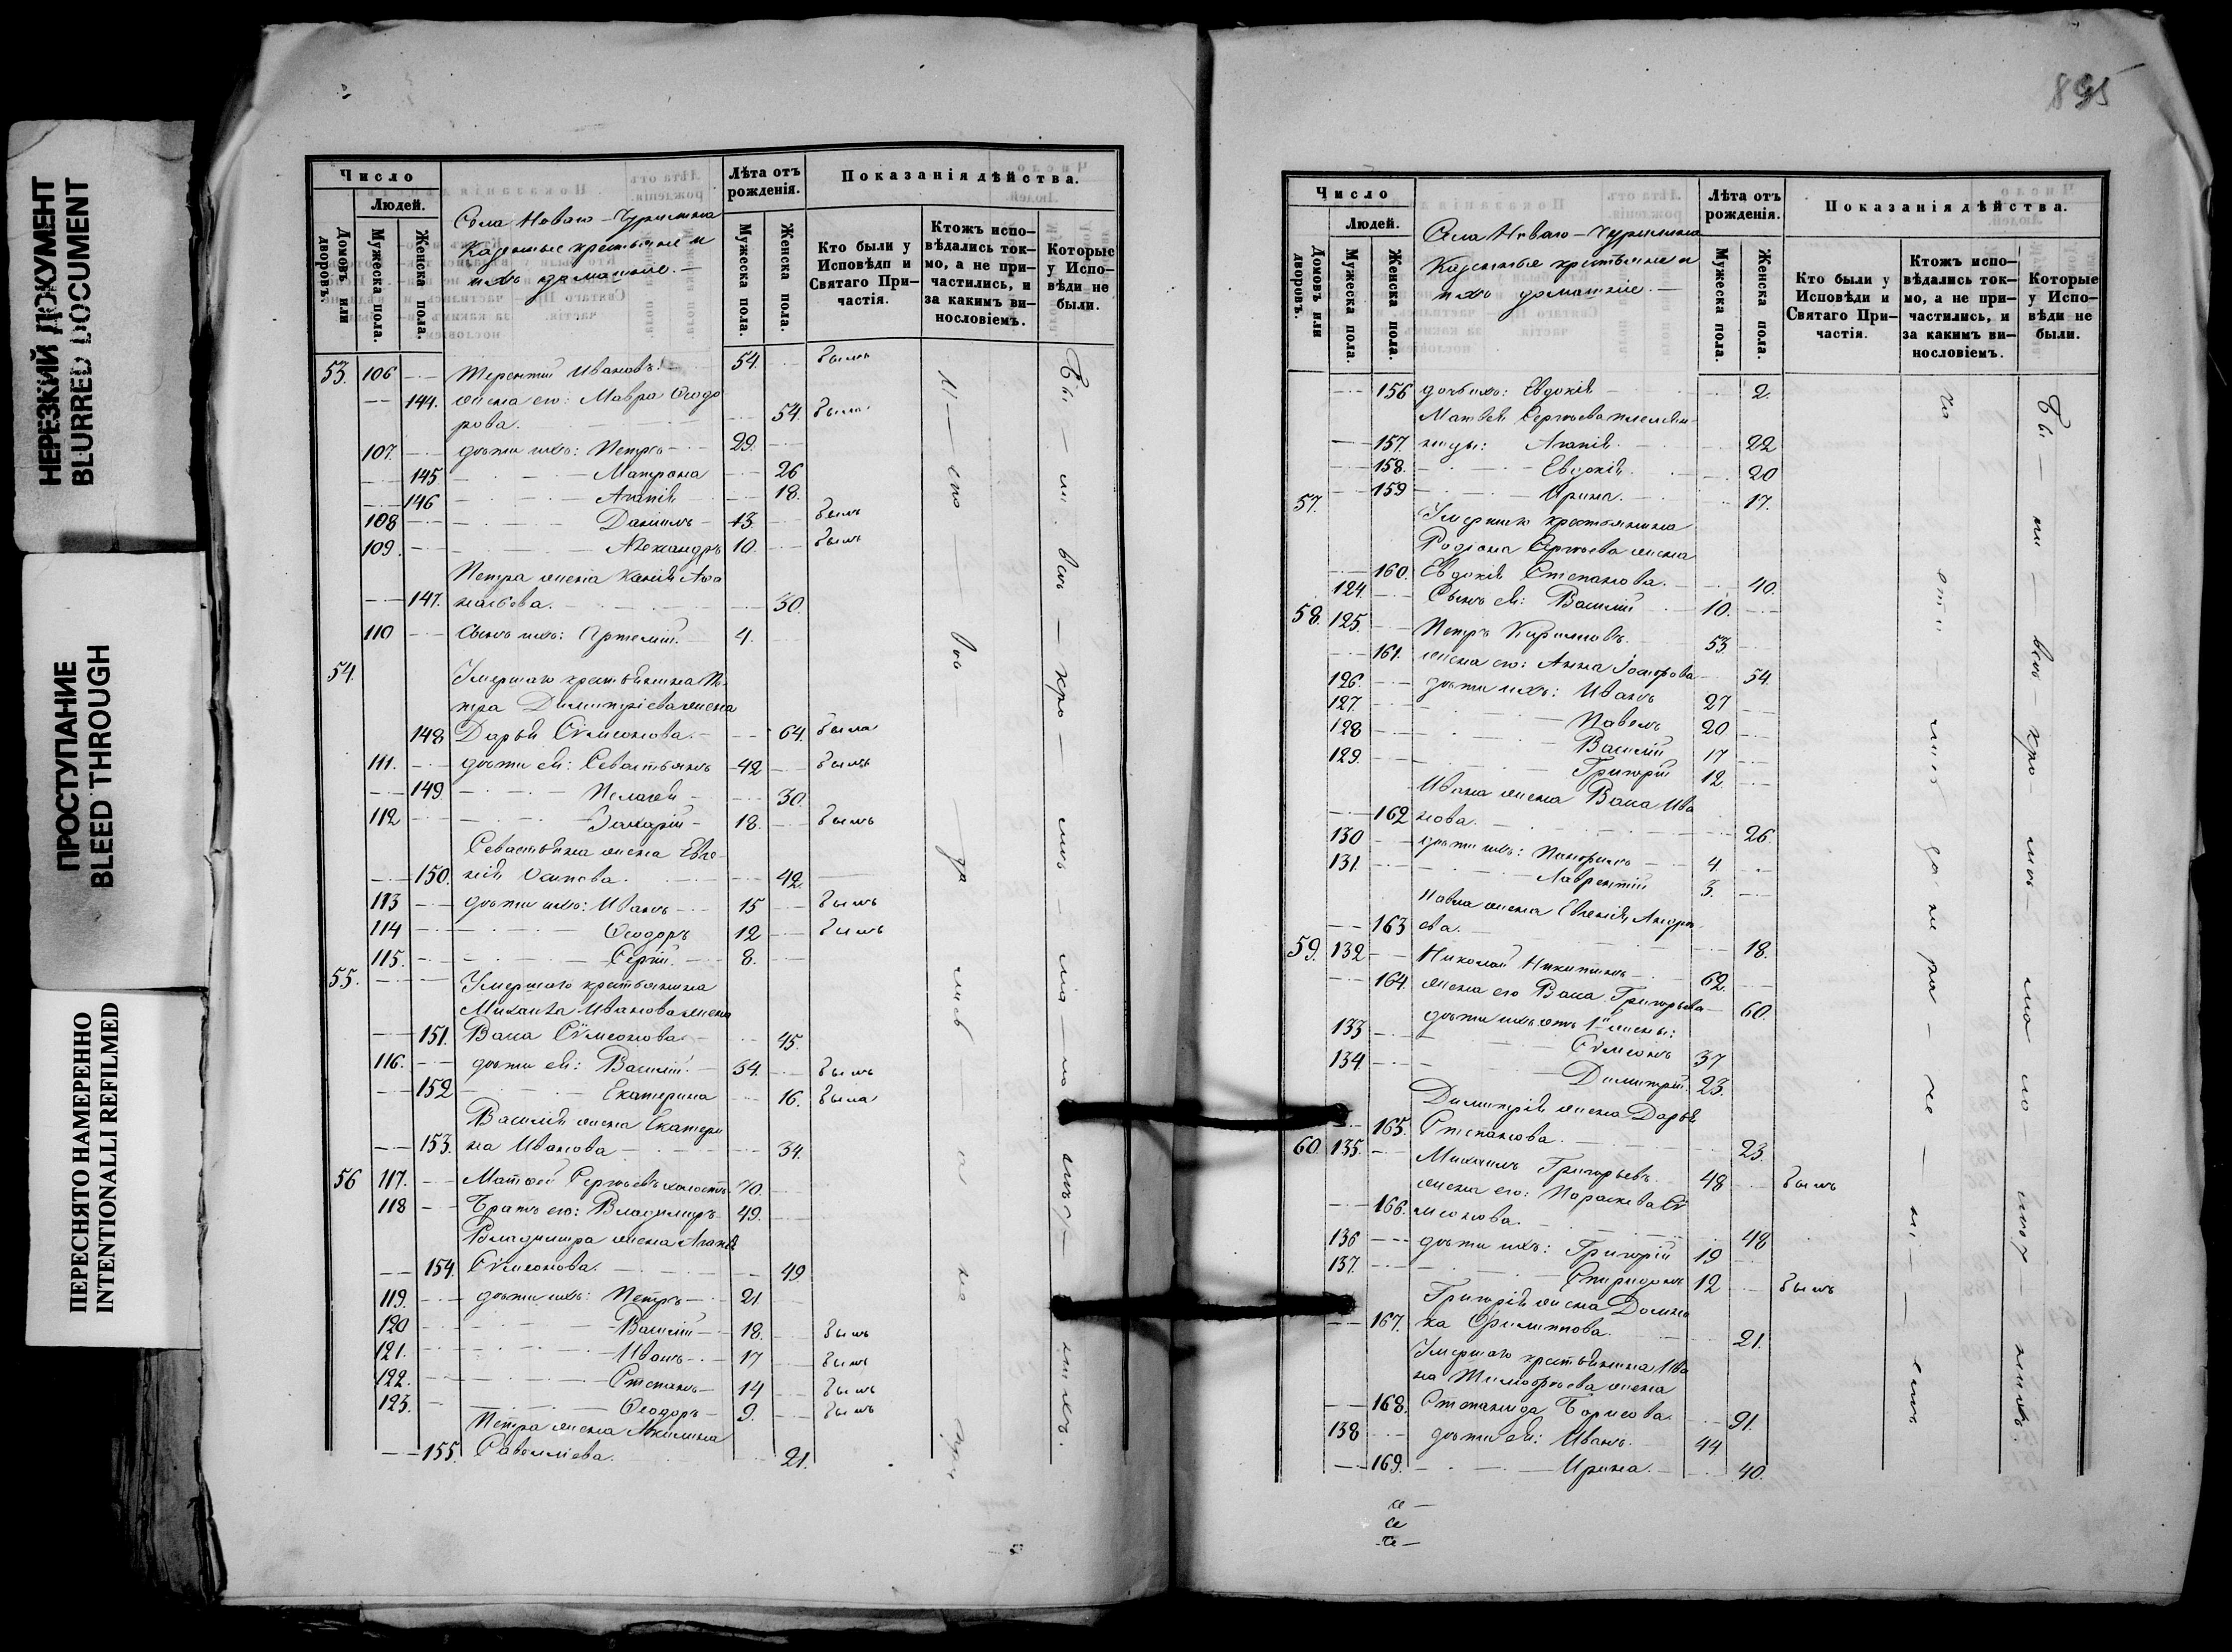 НЕРЕЗКИЙ ДОКУМЕНТ
BLURRED DOCUMENT
ПРОСТУПАНИЕ
BLEED THROUGH
ПЕРЕСНЯТО НАМЕРЕННО
INTENTIONALLI REFILMED
Число
Людей.
Домовъ или дворовъ.
Мужеска пола.
Женска пола.
Села Новаго-Чурилина
Казенные крестьяне и
ихъ домашніе.
Лѣта отъ рожденія.
Мужеска пола.
Женска пола.
Показанія дѣйства.
Кто были у Исповѣди и Святаго Причастія.
Ктожъ исповѣдались токмо, а не причастились, и за какимъ винословіемъ.
Которые у Исповѣди не были.
53. 106 Терентій Ивановъ. 54. былъ
144. жена его: Мавра Ѳеодо
рова. 54. была
107. дѣти ихъ: Петръ 29.
145 Матрона 26
146 Агапія 18.
108 Даніилъ 13. былъ
109. Александръ 10. былъ
Петра жена Ксенія Аѳа
147. насьева. 30.
110 Сынъ ихъ: Артемій. 4.
54. Умершаго крестьянина Пе-
тра Димитріева жена
148 Дарья Сѵмеонова. 64. была
111. дѣти ея: Севастьянъ 42 былъ
149. Пелагея 30.
112 Захарій 18. былъ
Севастьяна жена Евге-
150. нія Осипова. 42.
113 дѣти ихъ: Иванъ 15 былъ
114 Ѳеодоръ 12 былъ
115. Сергій. 8.
55. Умершаго крестьянина
Михаила Иванова жена
151. Васса Сѵмеонова 45.
116. дѣти ея: Василій. 34. былъ
152 Екатерина 16. была
Василія жена Екатери
153. на Иванова 34.
56 117. Матѳей Сергѣевъ холостъ. 70.
118 Братъ его: Владимиръ 49.
Владимира жена Агапія
154. Сѵмеонова. 49
119. дѣти ихъ: Петръ 21
120 Василій 18. былъ
121. Иванъ 17 былъ
122. Степанъ 14 былъ
123. Ѳеодоръ 9. былъ
Петра жена Акилина
155. Савеліева. 21.
895
Число
Людей.
Домовъ или дворовъ.
Мужеска пола.
Женска пола.
Села Новаго-Чурилина
Казенные крестьяне и
ихъ домашніе.
Лѣта отъ рожденія.
Мужеска пола.
Женска пола.
Показанія дѣйства.
Кто были у Исповѣди и Святаго Причастія.
Ктожъ исповѣдались токмо, а не причастились, и за какимъ винословіемъ.
Которые у Исповѣди не были.
156 дочь ихъ: Евдокія 2.
Матвѣя Сергѣева племян-
157. ницы: Агапія. 22
158. Евдокія. 20
159 Ирина. 17.
57. Умершаго крестьянина
Родіона Сергѣева жена
160. Евдокія Степанова. 40.
124. Сынъ ея: Василій 10.
58. 125. Петръ Кириловъ. 53.
161. жена его: Анна 54.
126. дѣти ихъ: Иванъ 27
127. Павелъ 20
128 Василій 17
129. Григорій 12.
Ивана жена Васса Ива
162 нова. 26.
130 дѣти ихъ: 4.
131. Лаврентій 3.
Павла жена Евгенія Андре
163 ева. 18.
59. 132 Николай Никитинъ 62.
164. жена его Васса Григорьева 60.
дѣти ихъ отъ 1й жены:
133 Сѵмеонъ 37
134 Димитрій. 23.
Димитрія жена Дарья
165. Степанова. 23.
60. 135. Михаилъ Григорьевъ. 48 былъ
жена его: Параскева Сѵ
166. меонова. 48
136 дѣти ихъ: Григорій 19
137. Спиридонъ 12 былъ
Григорія жена Домни
167. ка Филиппова. 21.
Умершаго крестьянина Ива
на Тимоѳеева жена
168. Степанида Борисова. 91.
138 дѣти ея: Иванъ. 44.
169. Ирина. 40.